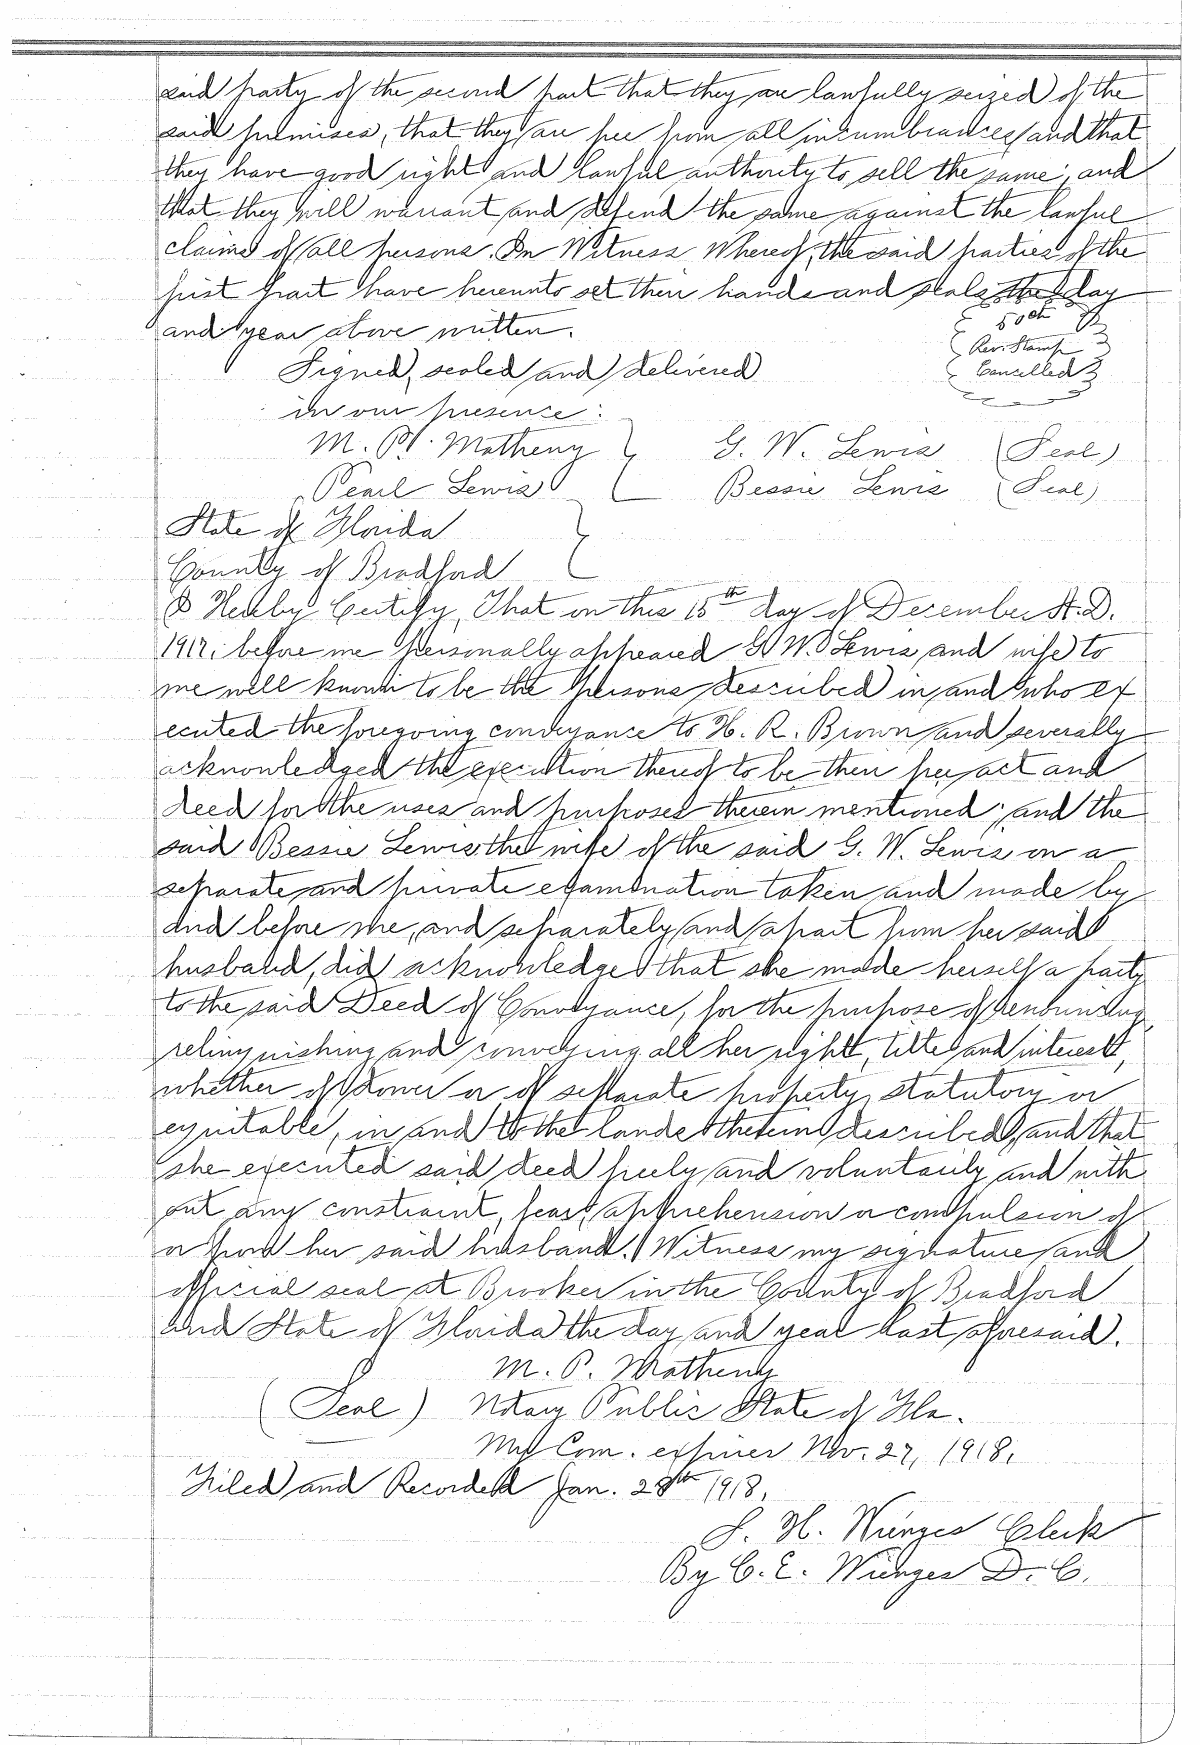 said party of the second part that they are lawfully seized of the
said premises, that they are free from all incumbrances and that
they have good right and lawful authority to sell the same; and
that they will warrant and defend the same against the lawful
claims of all persons. In Witness Whereof, the said parties of the
first part have hereunto set their hands and seals the day
and year above written.
50cts
Rev. Stamp
Cancelled
Signed, sealed and delivered
in our presence:
M. P. Matheny G. W. Lewis (Seal)
Pearl Lewis Bessie Lewis (Seal)
State of Florida
County of Bradford
I Hereby Certify, That on this 15th day of December A.D.
1917, before me personally appeared G. W. Lewis and wife to
me well known to be the persons described in and who ex
ecuted the foregoing conveyance to H. R. Brown and severally
acknowledged the execution thereof to be their free act and
deed for the uses and purposes therein mentioned; and the
said Bessie Lewis the wife of the said G. W. Lewis on a
separate and private examination taken and made by
and before me, and separately and apart from her said
husband, did acknowledge that she made herself a party
to the said Deed of Conveyance, for the purpose of renouncing,
relinquishing and conveying all her right, title and interest,
whether of dower or of separate property, statutory or
equitable, in and to the lands therein described, and that
she executed said deed freely and voluntarily and with
out any constraint, fear, apprehension or compulsion of
or from her said husband. Witness my signature and
official seal at Brooker in the County of Bradford
and State of Florida the day and year last aforesaid.
M. P. Matheny
(Seal) Notary Public State of Fla.
My Com. expires Nov. 27, 1918.
Filed and Recorded Jan. 28th 1918,
J. H. Wienges Clerk
By C. E. Wienges D. C.